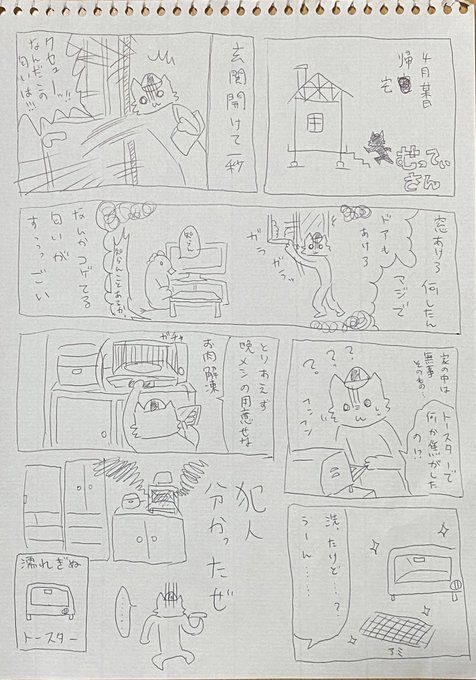 4月某日
帰宅
もってぃ
さん
玄関開けて一秒
クセェーッ!!
なんだこの
匂いは!!!
窓あけろ何したん
ドアも
あけろ
マジで
ガラガラッ
なんかコゲてる
匂いが
すっっごい
家の中は
無事
そのもの
トースターで
何か焦がした
の!?
???
フンフン
とりあえず
晩メシの用意せな
お肉解凍
ガチャ
洗ったけど…?
うーん……
アミ
犯人
分かったぜ
……
濡れぎぬ
トースター